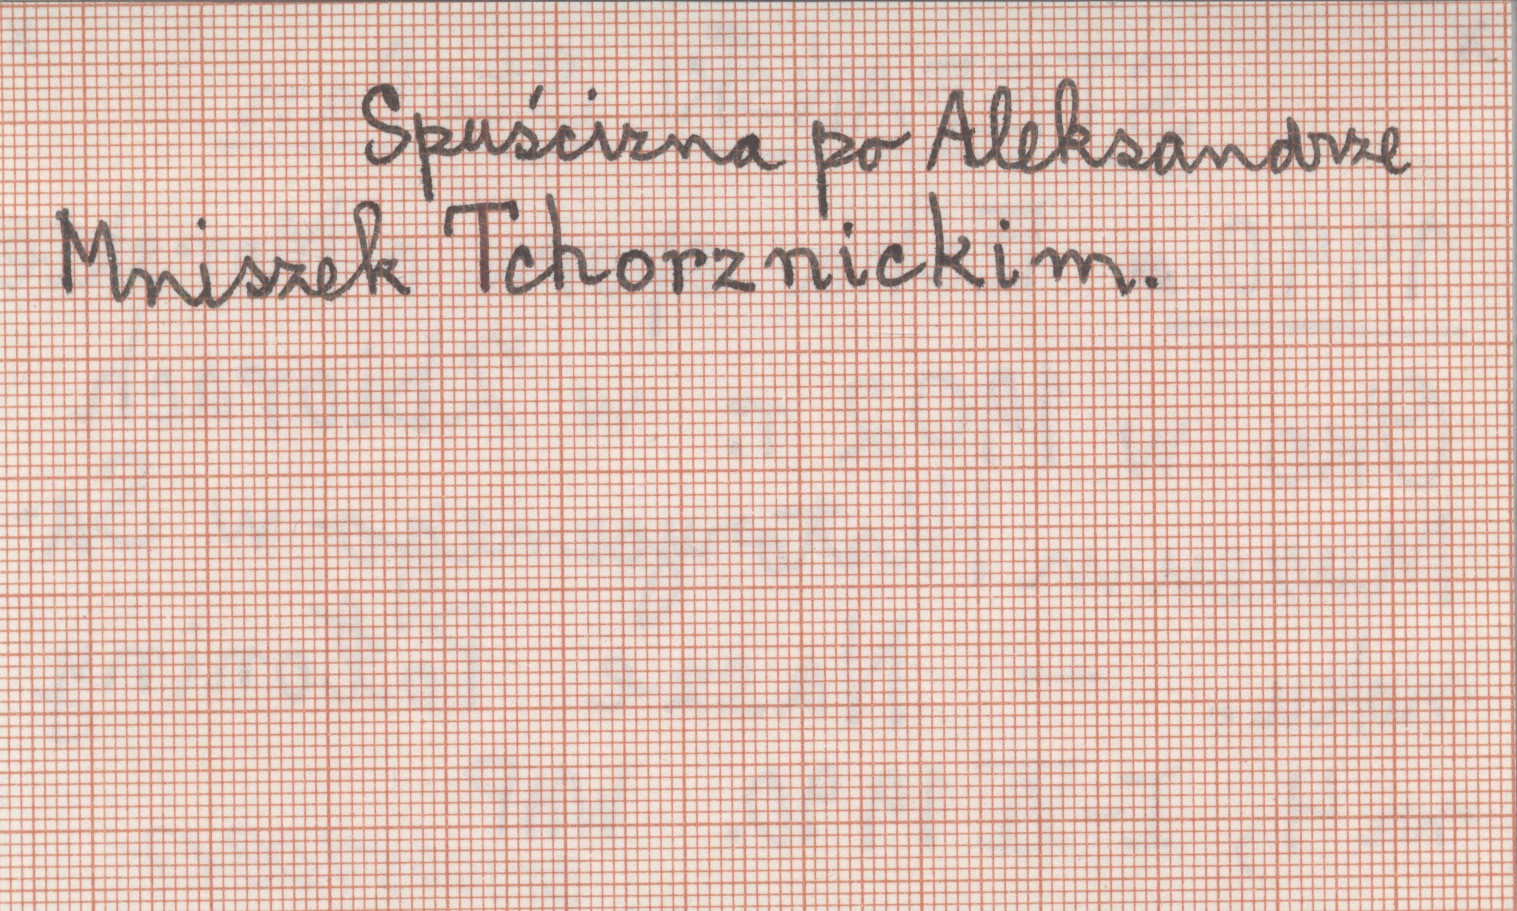 Spuścizna po Aleksandrze
Mniszek Tchorznickim.